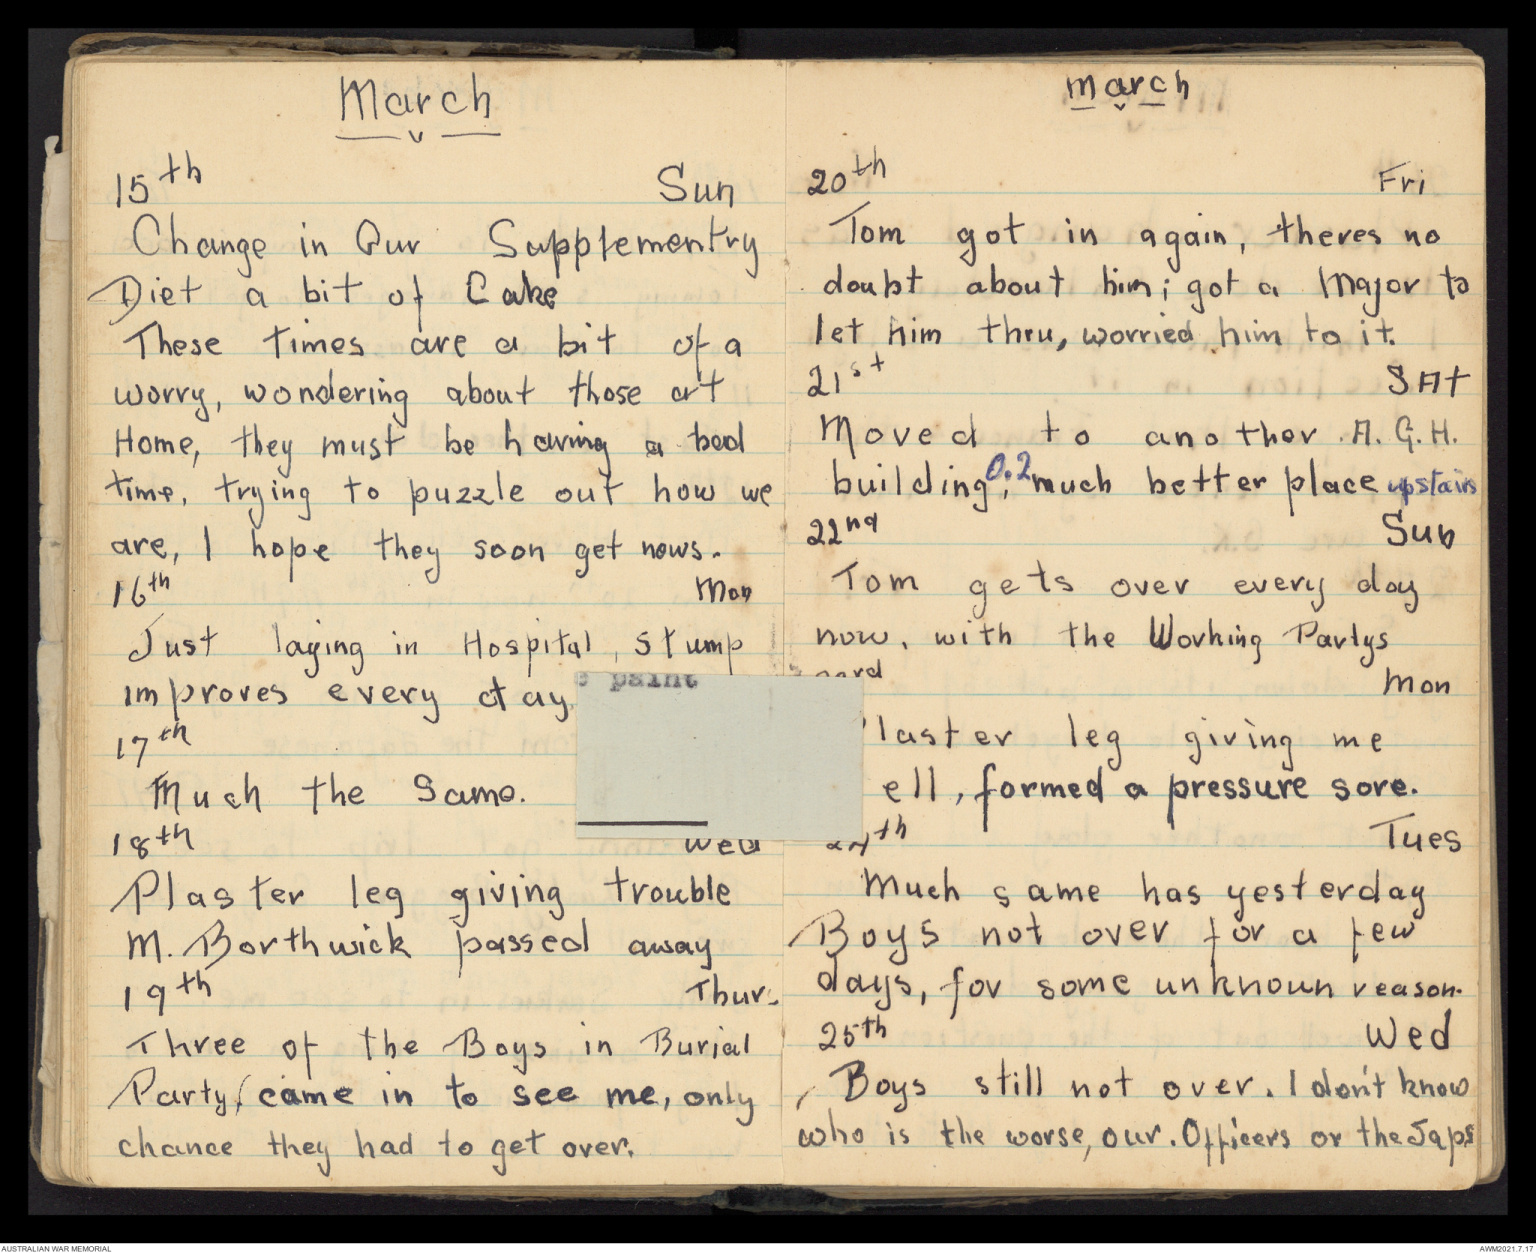 March
15th Sun
Change in Our Supplementry
Diet a bit of Cake
These times are a bit of a
worry, wondering about those at
Home, they must be having a bad
time, trying to puzzle out how we
are, I hope they soon get news.
16th Mon
Just laying in Hospital, stump
improves every day
17th
Much the Same.
18th Wed
Plaster leg giving trouble
M. Borthwick passed away
19th Thur.
Three of the Boys in Burial
Party, came in to see me, only
chance they had to get over.
e paint
March
20th Fri
Tom got in again, theres no
doubt about him; got a Major to
let him thru, worried him to it.
21st SAt
Moved to another A.G.H.
building O.2, much better place upstairs
22nd Sun
Tom gets over every day
now, with the Working Partys
Mon
laster leg giving me
ell, formed a pressure sore.
24th Tues
Much same has yesterday
Boys not over for a few
days, for some unknoun reason.
25th Wed
Boys still not over. I don't know
who is the worse, our. Officers or the Japs
AUSTRALIAN WAR MEMORIAL
AWM2021.7.17